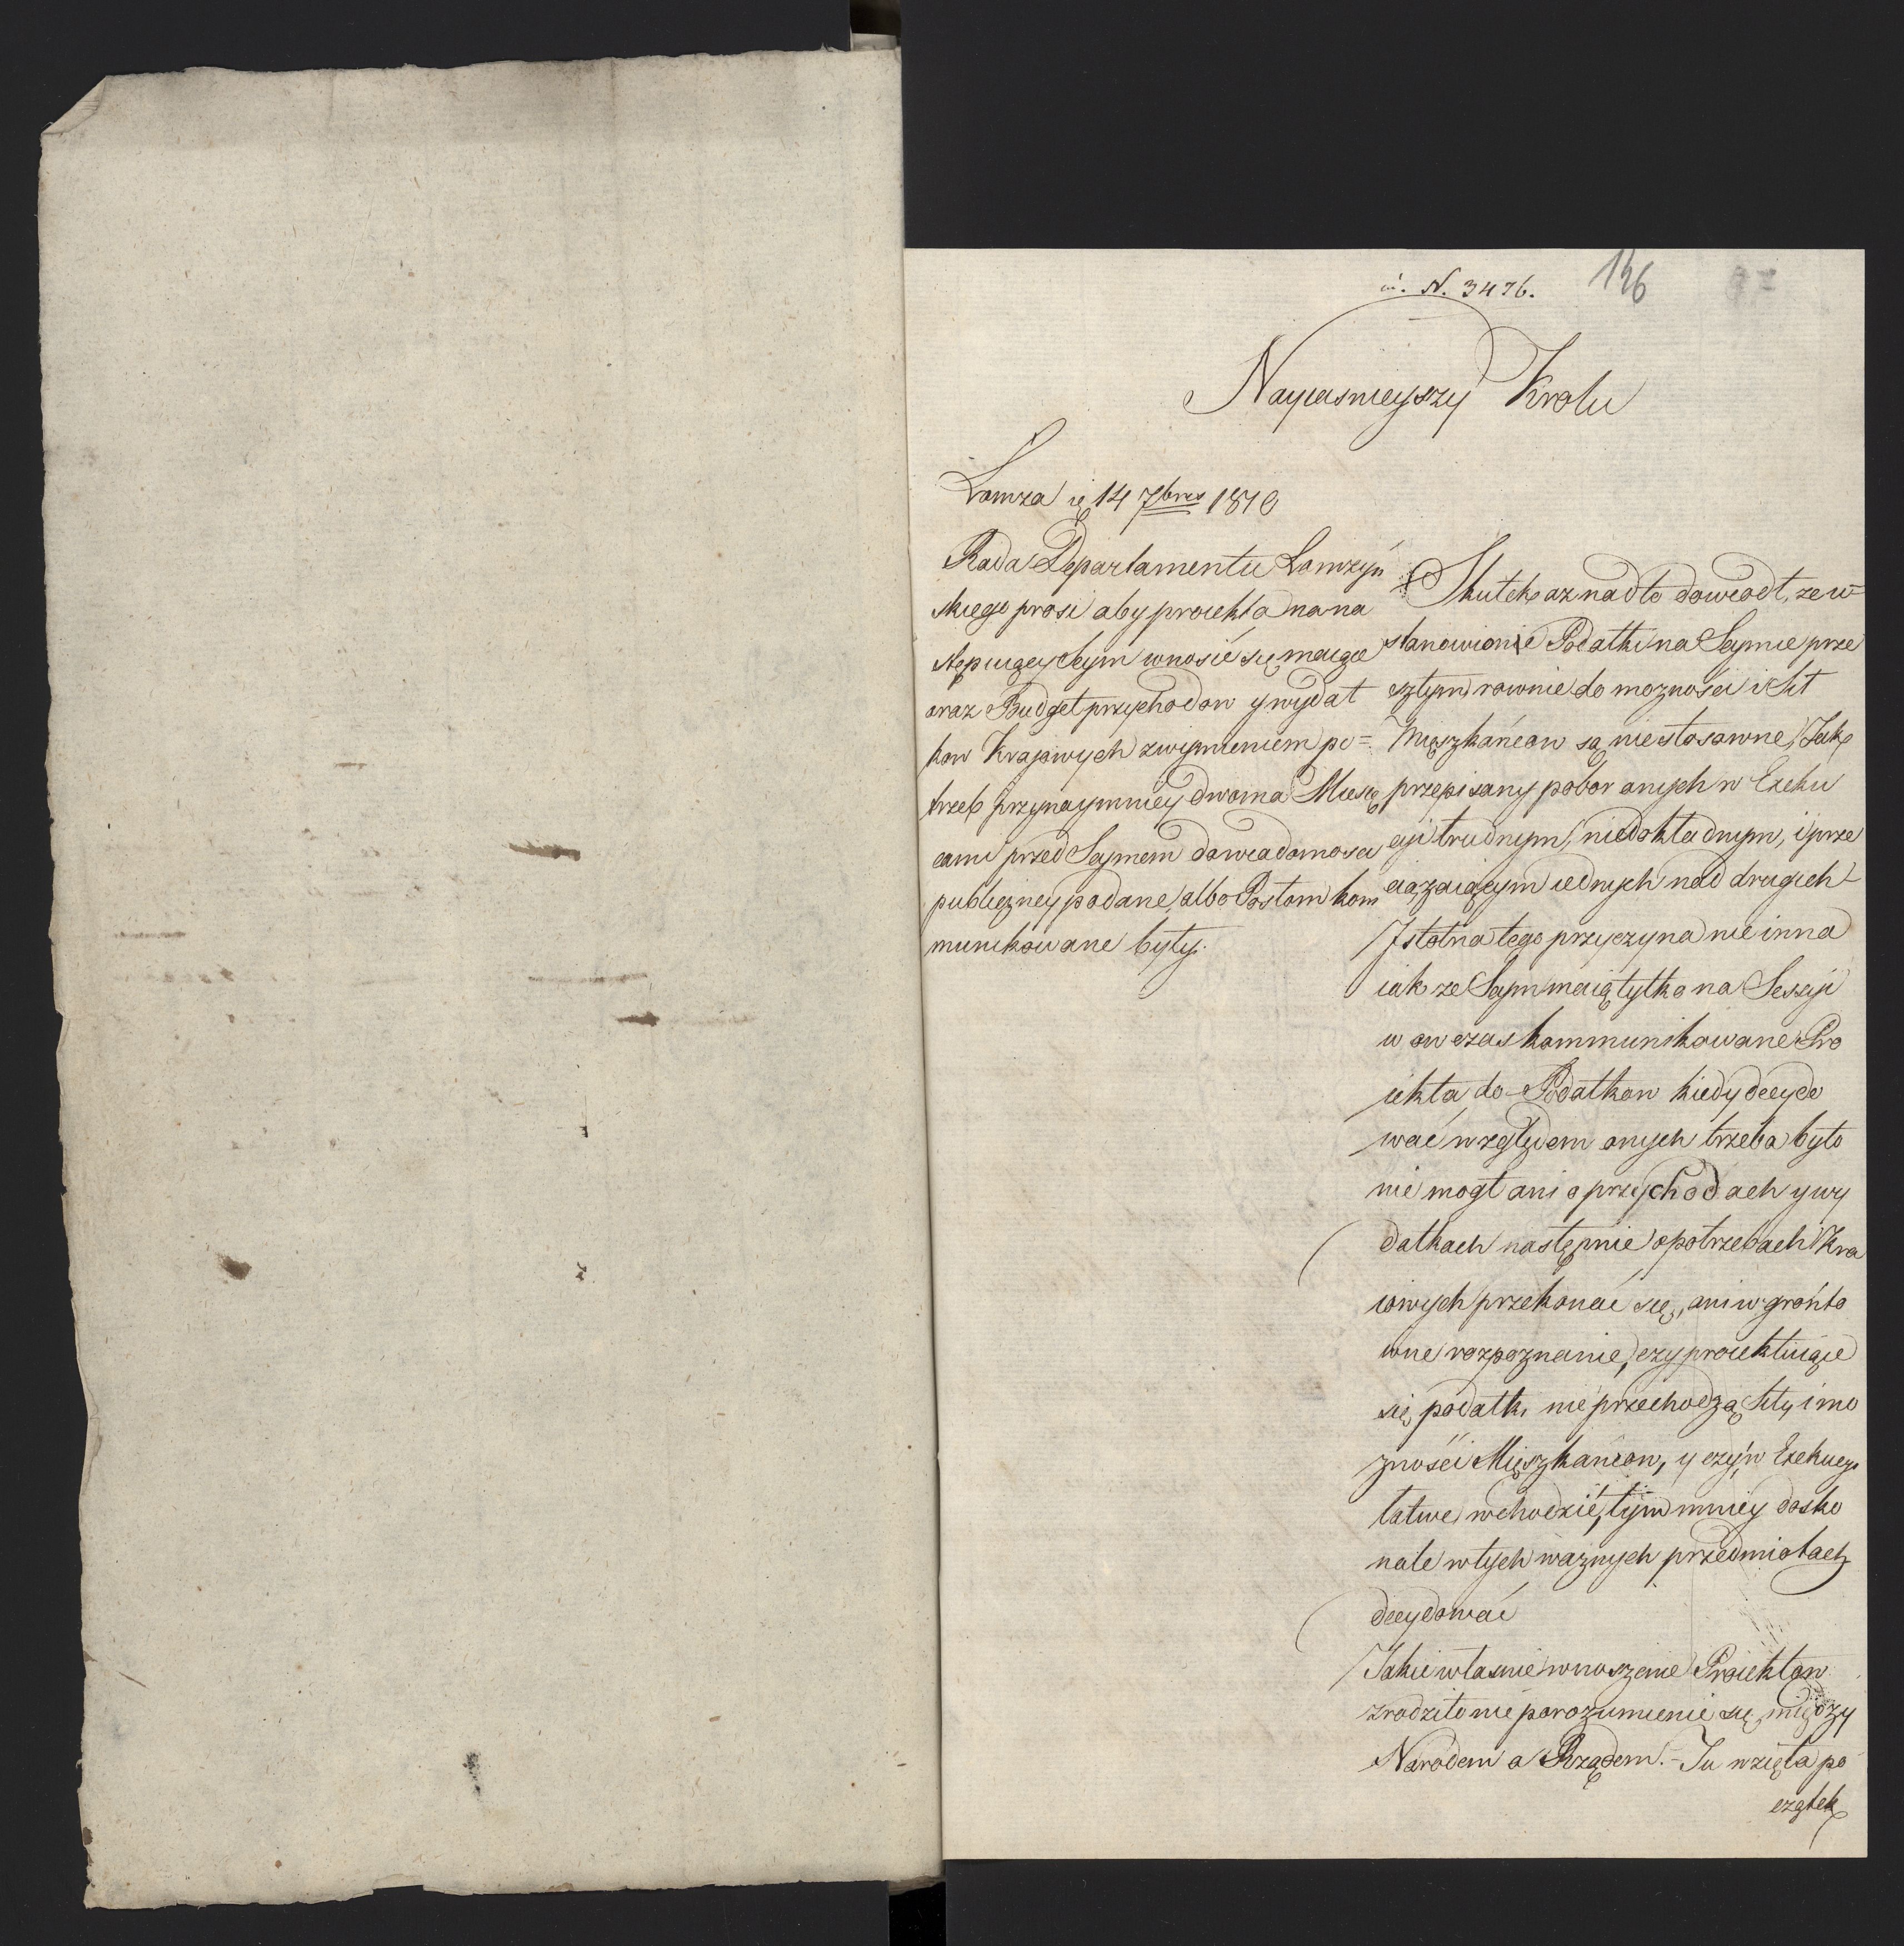 N. 3476.
136
Nayiasnieyszy Krolu
Lomza 14 7bris 1810
Rada Departamentu Lomzyń
skiego prosi aby proiekta na na
stępuiący Seym wnosić się maiące
oraz Budget przychodow y wydat
kow Krajowych zwymieniem po=
trzeb przynaymniey dwoma Miesię
cami przed Seymem do wiadomosci
publiczney podane albo Posłom kom
munikowane były.
Skutek az nadto dowiodł, ze w
stanowione Podatki na Seymie prze
szłym rownie do moznosci i Sił
Mięszkańcow są nie stosowne, Jak
przepisany pobor onych w Exeku
cyi trudnym, niedokładnym, i prze
ciązaiącym iednych nad drugich
Istotna tego przyczyna nie inna
iak ze Seym maią tylko na Sessyi
w ow czas kommunikowane Pro
iekta do Podatkow kiedy decydo
wać względem onych trzeba było
nie mogł ani o przychodach y wy
datkach następnie o potrzebach Kra
iowych przekonać się, ani w gronto
wne rozpoznanie, czy proiektuiące
się podatki nie przechodzą Siły i mo
zności Mięszkańcow, y czy w Exekucyę
łatwe wchodzić, tym mniey dosko
nale w tych waznych przedmiotach
decydować
Takie własnie wnoszenie Proiektow
zrodziło nie porozumienie się między
Narodem a Rządem. - Tu wzięła po
czątek